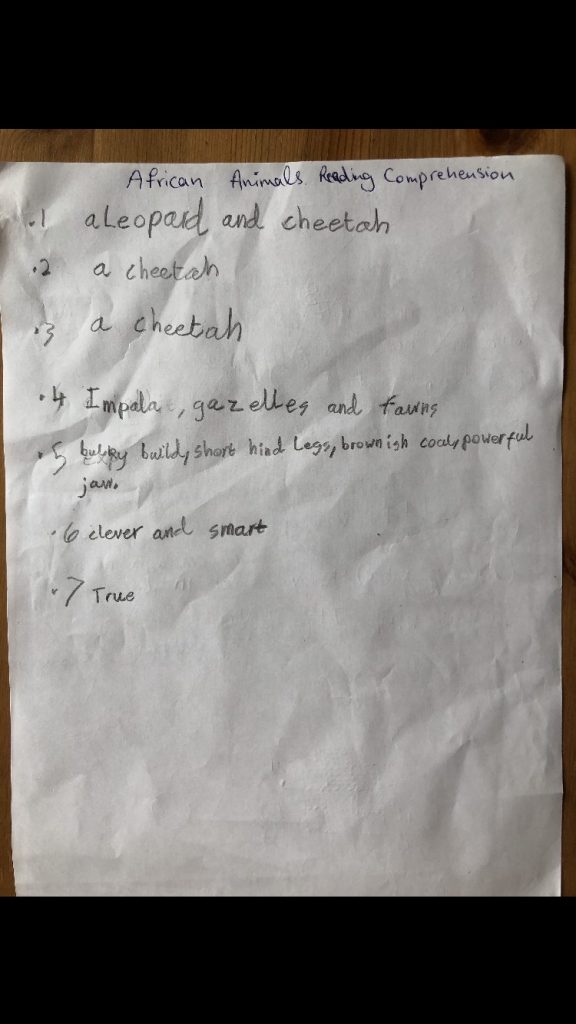 African Animals Reading Comprehension
.1 a Leopard and cheetah
.2 a cheetah
.3 a cheetah
.4 Impala, gazelles and fawns
.5 bulky build, short hind Legs, brownish coat, powerful
jaw.
.6 clever and smart
.7 True